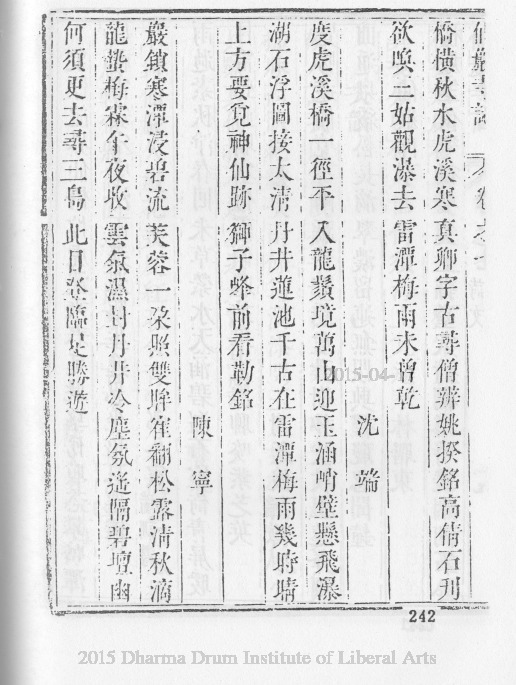 仙巖寺志 卷之
橋橫秋水虎溪寒 真卿字古尋僧辨 姚揆銘高倩石刊
欲喚三姑觀瀑去 雷潭梅雨未曾乾
沈端
度虎溪橋一徑平 入龍鬚境萬山迎 玉涵峭壁懸飛瀑
湖石浮圖接太清 丹井蓮池千古在 雷潭梅雨幾時晴
上方要覓神仙跡 獅子峰前看勒銘
陳寧
巖鎖寒潭浸碧流 芙蓉一朵照雙眸 崔翻松露清秋滴
龍蟄梅霖午夜收 雲氣濕封丹井冷 塵氛遙隔碧壇幽
何須更去尋三島 此日登臨是勝遊
242
2015-04-1
2015 Dharma Drum Institute of Liberal Arts